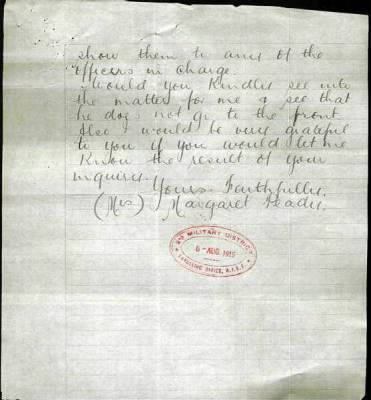 show them to any of the
officers in charge.
Would you kindly see into
the matter for me & see that
he does not go to the front
Also I would be very grateful
to you if you would let me
know the result of your
inquires.
Yours Faithfully.
(Mrs) Margaret
MILITARY DISTRICT
6 - AUG. 1915
OFFICE, A.I.E.F.